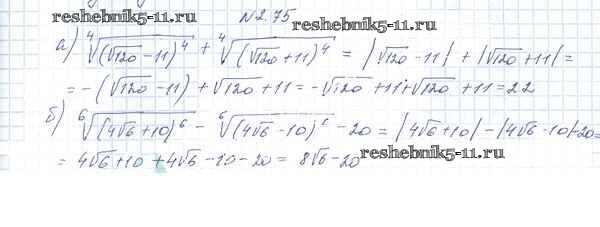 reshebnik5-11.ru
№2.75
reshebnik5-11.ru
а) ⁴√((√120 - 11)⁴) + ⁴√((√120 + 11)⁴) = |√120 - 11| + |√120 + 11| =
= -(√120 - 11) + √120 + 11 = -√120 + 11 + √120 + 11 = 22
б) ⁶√((4√6 + 10)⁶) - ⁶√((4√6 - 10)⁶) - 20 = |4√6 + 10| - |4√6 - 10| - 20 =
= 4√6 + 10 + 4√6 - 10 - 20 = 8√6 - 20
reshebnik5-11.ru